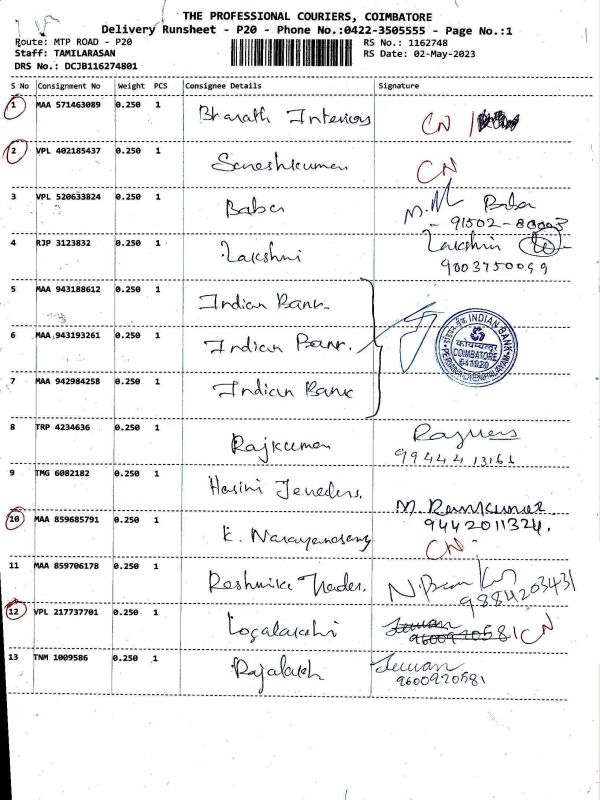 THE PROFESSIONAL COURIERS, COIMBATORE
Delivery Runsheet - P20 - Phone No.:0422-3505555 - Page No.:1
Route: MTP ROAD - P20
RS No.: 1162748
Staff: TAMILARASAN
RS Date: 02-May-2023
DRS No.: DCJB116274801
S No Consignment No Weight PCS Consignee Details Signature
1 MAA 571463089 0.250 1 Bharath Interiors CN
2 VPL 402185437 0.250 1 CN
3 VPL 520633824 0.250 1 Baber M.M Baba
4 RJP 3123832 0.250 1 Lakshmi Lakshmi
9003750099
5 MAA 943188612 0.250 1 Indian Bank
6 MAA 943193261 0.250 1 Indian Bank.
7 MAA 942984258 0.250 1 Indian Bank
INDIAN BANK
कोयम्बत्तूर
COIMBATORE
641020
8 TRP 4234636 0.250 1 Rajkumar
99444 13161
9 TMG 6082182 0.250 1 Hasini M. Ramkumar
9442011324.
10 MAA 859685791 0.250 1 K. Narayanasamy CN
11 MAA 859706178 0.250 1 Rashmika Trader.
9884203431
12 VPL 217737701 0.250 1 Logalakshi
9600920581 CN
13 TNM 1009586 0.250 1 Rajalakh
9600920581